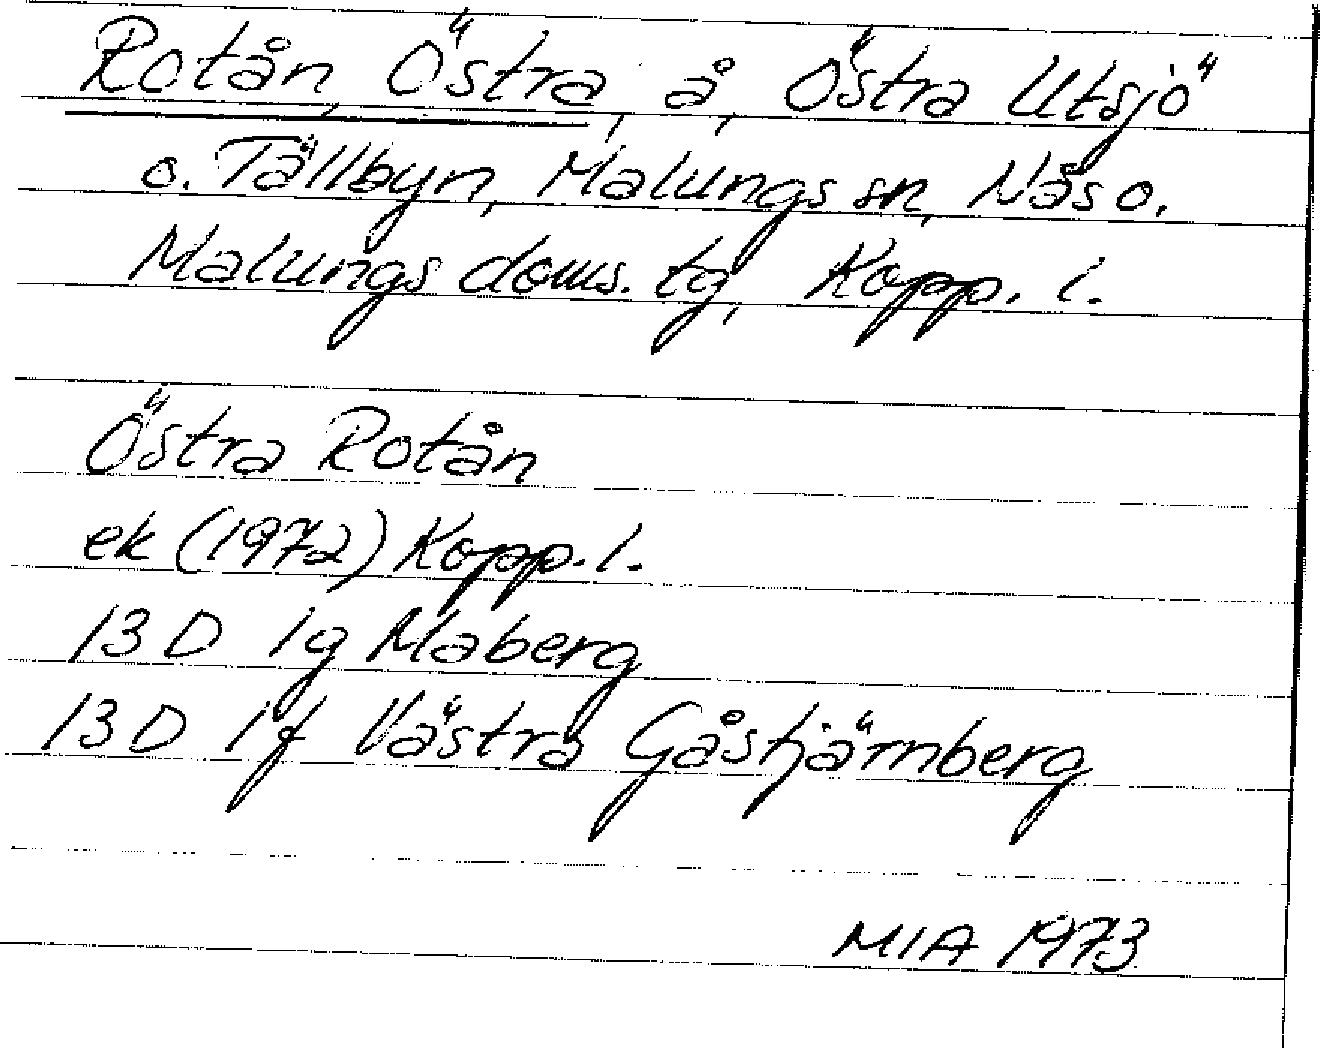 Rotån, Östra, å, Östra Utsjö
o. Tällbyn, Malungs sn, Nås o.
Malungs doms. tg, Kopp. l.
Östra Rotån
ek (1972) Kopp. l.
13 D 1g Maberg
13 D 1f Västra Gåstjärnberg
MIA 1973